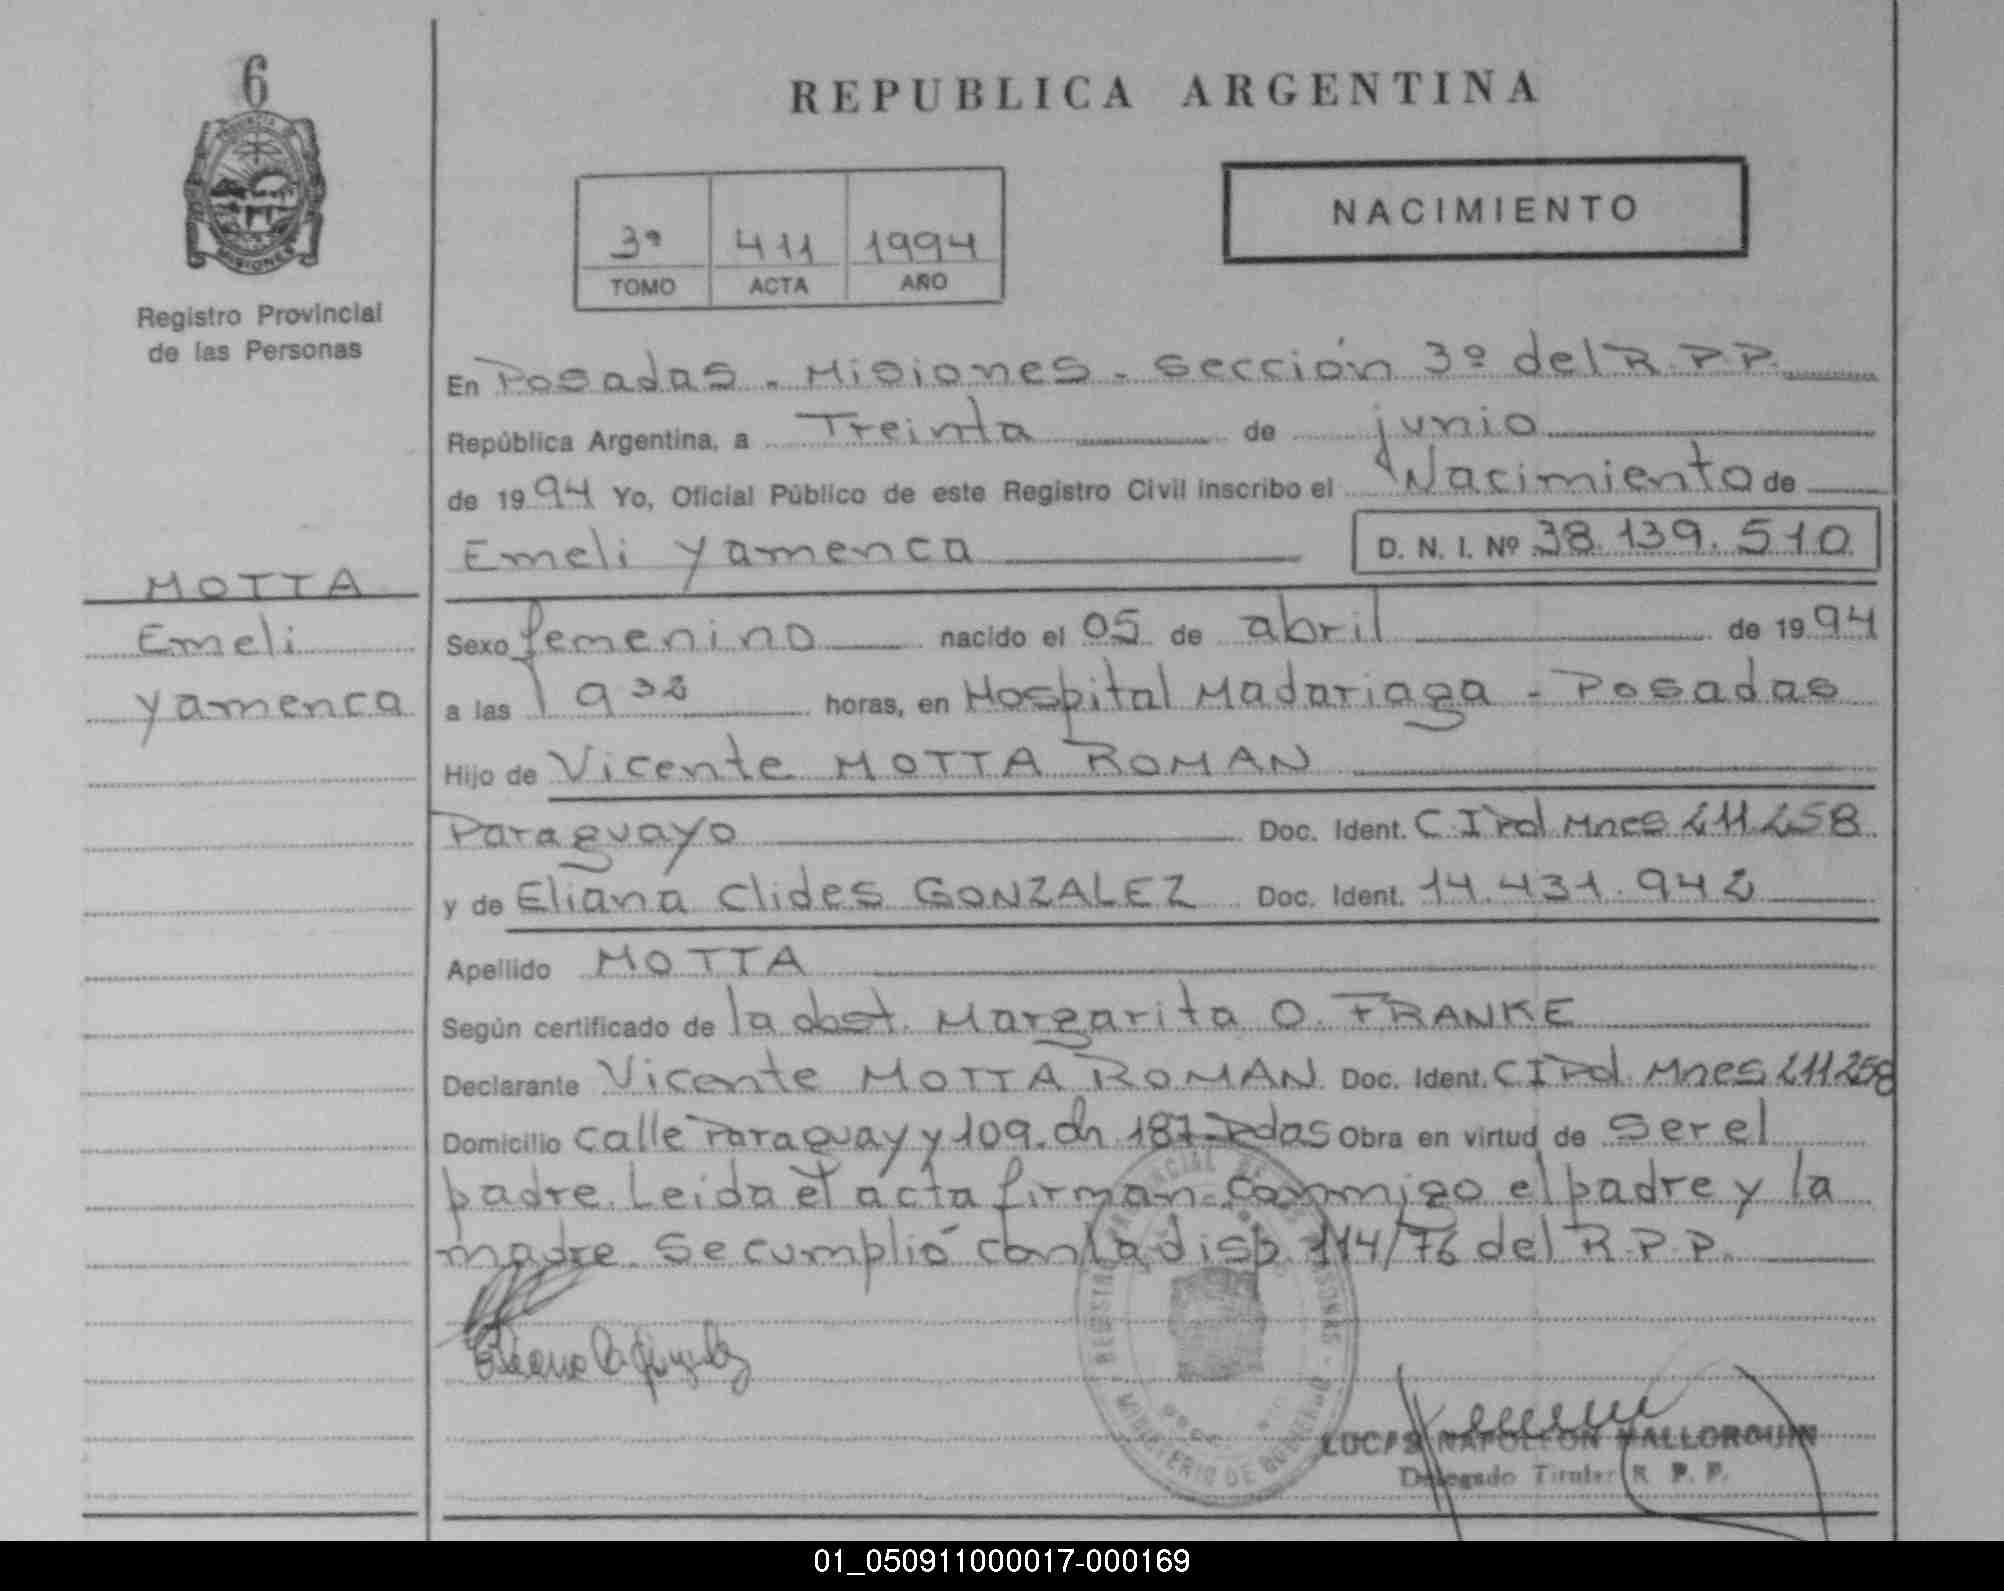 6
PROVINCIA DE
MISIONES
Registro Provincial
de las Personas
REPUBLICA ARGENTINA
NACIMIENTO
3º 411 1994
TOMO ACTA AÑO
En Posadas - Misiones - Sección 3º del R.P.P.
República Argentina, a Treinta de junio
de 1994 Yo, Oficial Público de este Registro Civil inscribo el Nacimiento de
Emeli Yamenca D. N. I. Nº 38.139.510
MOTTA
Emeli
Yamenca
Sexo femenino nacido el 05 de abril de 1994
a las 19 32 horas, en Hospital Madariaga - Posadas
Hijo de Vicente MOTTA ROMAN
Paraguayo Doc. Ident. C I Pol Mnes 211258
y de Eliana Clides GONZALEZ Doc. Ident. 14.431.942
Apellido MOTTA
Según certificado de la obst. Margarita O. FRANKE
Declarante Vicente MOTTA ROMAN Doc. Ident. C I Pol Mnes 211258
Domicilio calle Paraguay y 109. ch 187 - Pdas Obra en virtud de ser el
padre. Leida el acta firman conmigo el padre y la
madre. Se cumplió con la disp. 114/76 del R.P.P.
REGISTRO PROVINCIAL DE LAS PERSONAS
MINISTERIO DE GOBIERNO
LUCAS NAPOLEON MALLORQUIN
Delegado Titular R. P. P.
01_050911000017-000169